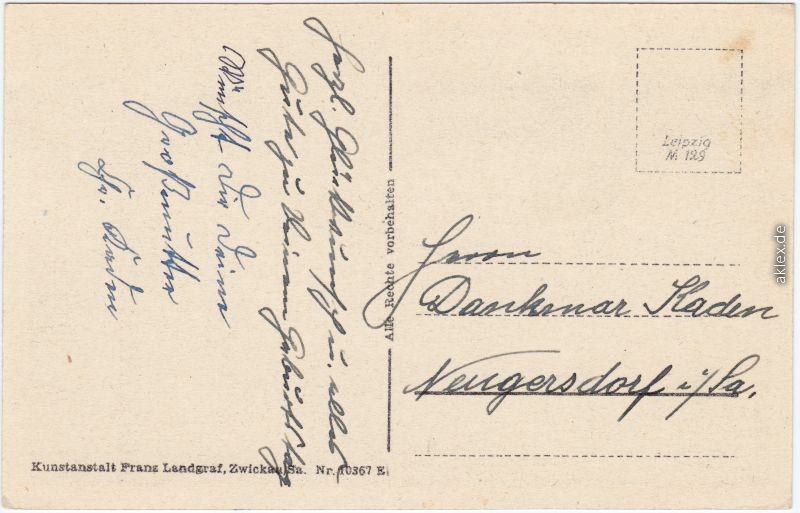 Herzl. Glückwunsch u. alles
Gute zu Deinem Geburtstag
Wünscht Dir Deine
Großmutter
Kaden
Alle Rechte vorbehalten
Leipzig
M 129
Herrn
Dankmar Kaden
Neugersdorf i/Sa.
Kunstanstalt Franz Landgraf, Zwickau/Sa. Nr. 10367 E
aklex.de